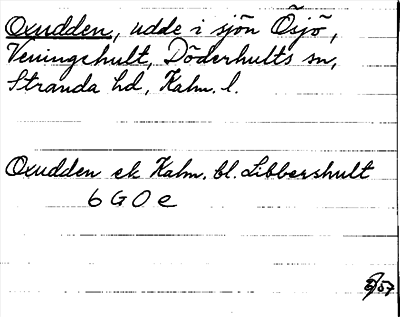 Oxudden, udde i sjön Ösjö,
Veningehult, Döderhults sn,
Stranda hd, Kalm. l.
Oxudden ek Kalm. bl. Libbershult
6 G O e
/57